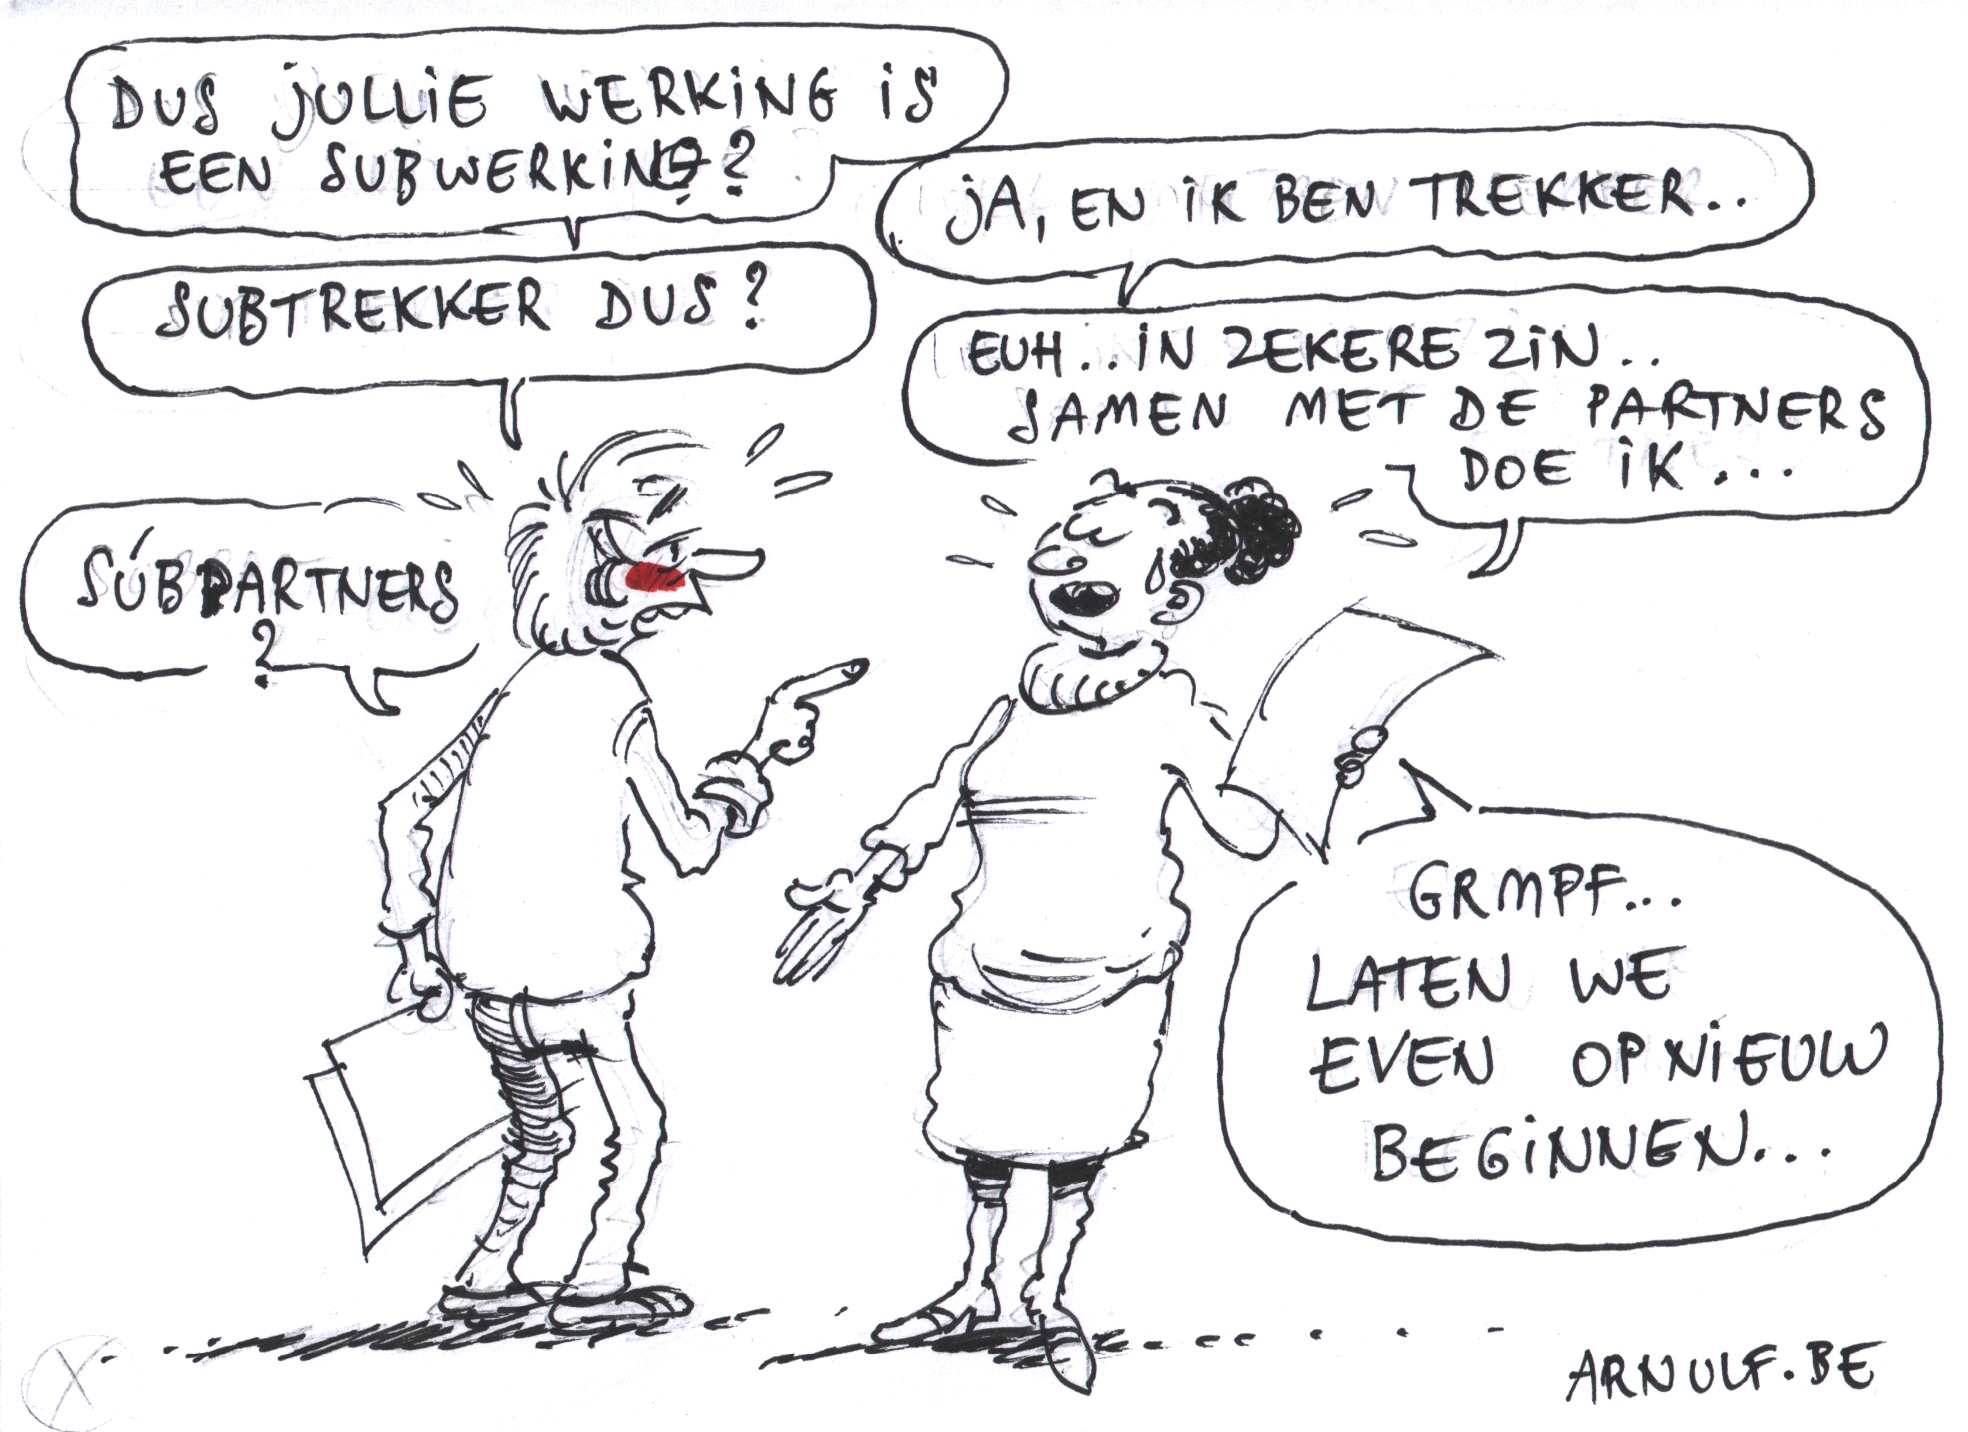 DUS JULLIE WERKING IS
EEN SUBWERKING?
JA, EN IK BEN TREKKER..
SUBTREKKER DUS?
EUH.. IN ZEKERE ZIN..
SAMEN MET DE PARTNERS
DOE IK...
SÚBPARTNERS
?
GRMPF...
LATEN WE
EVEN OPNIEUW
BEGINNEN...
ARNULF.BE
X